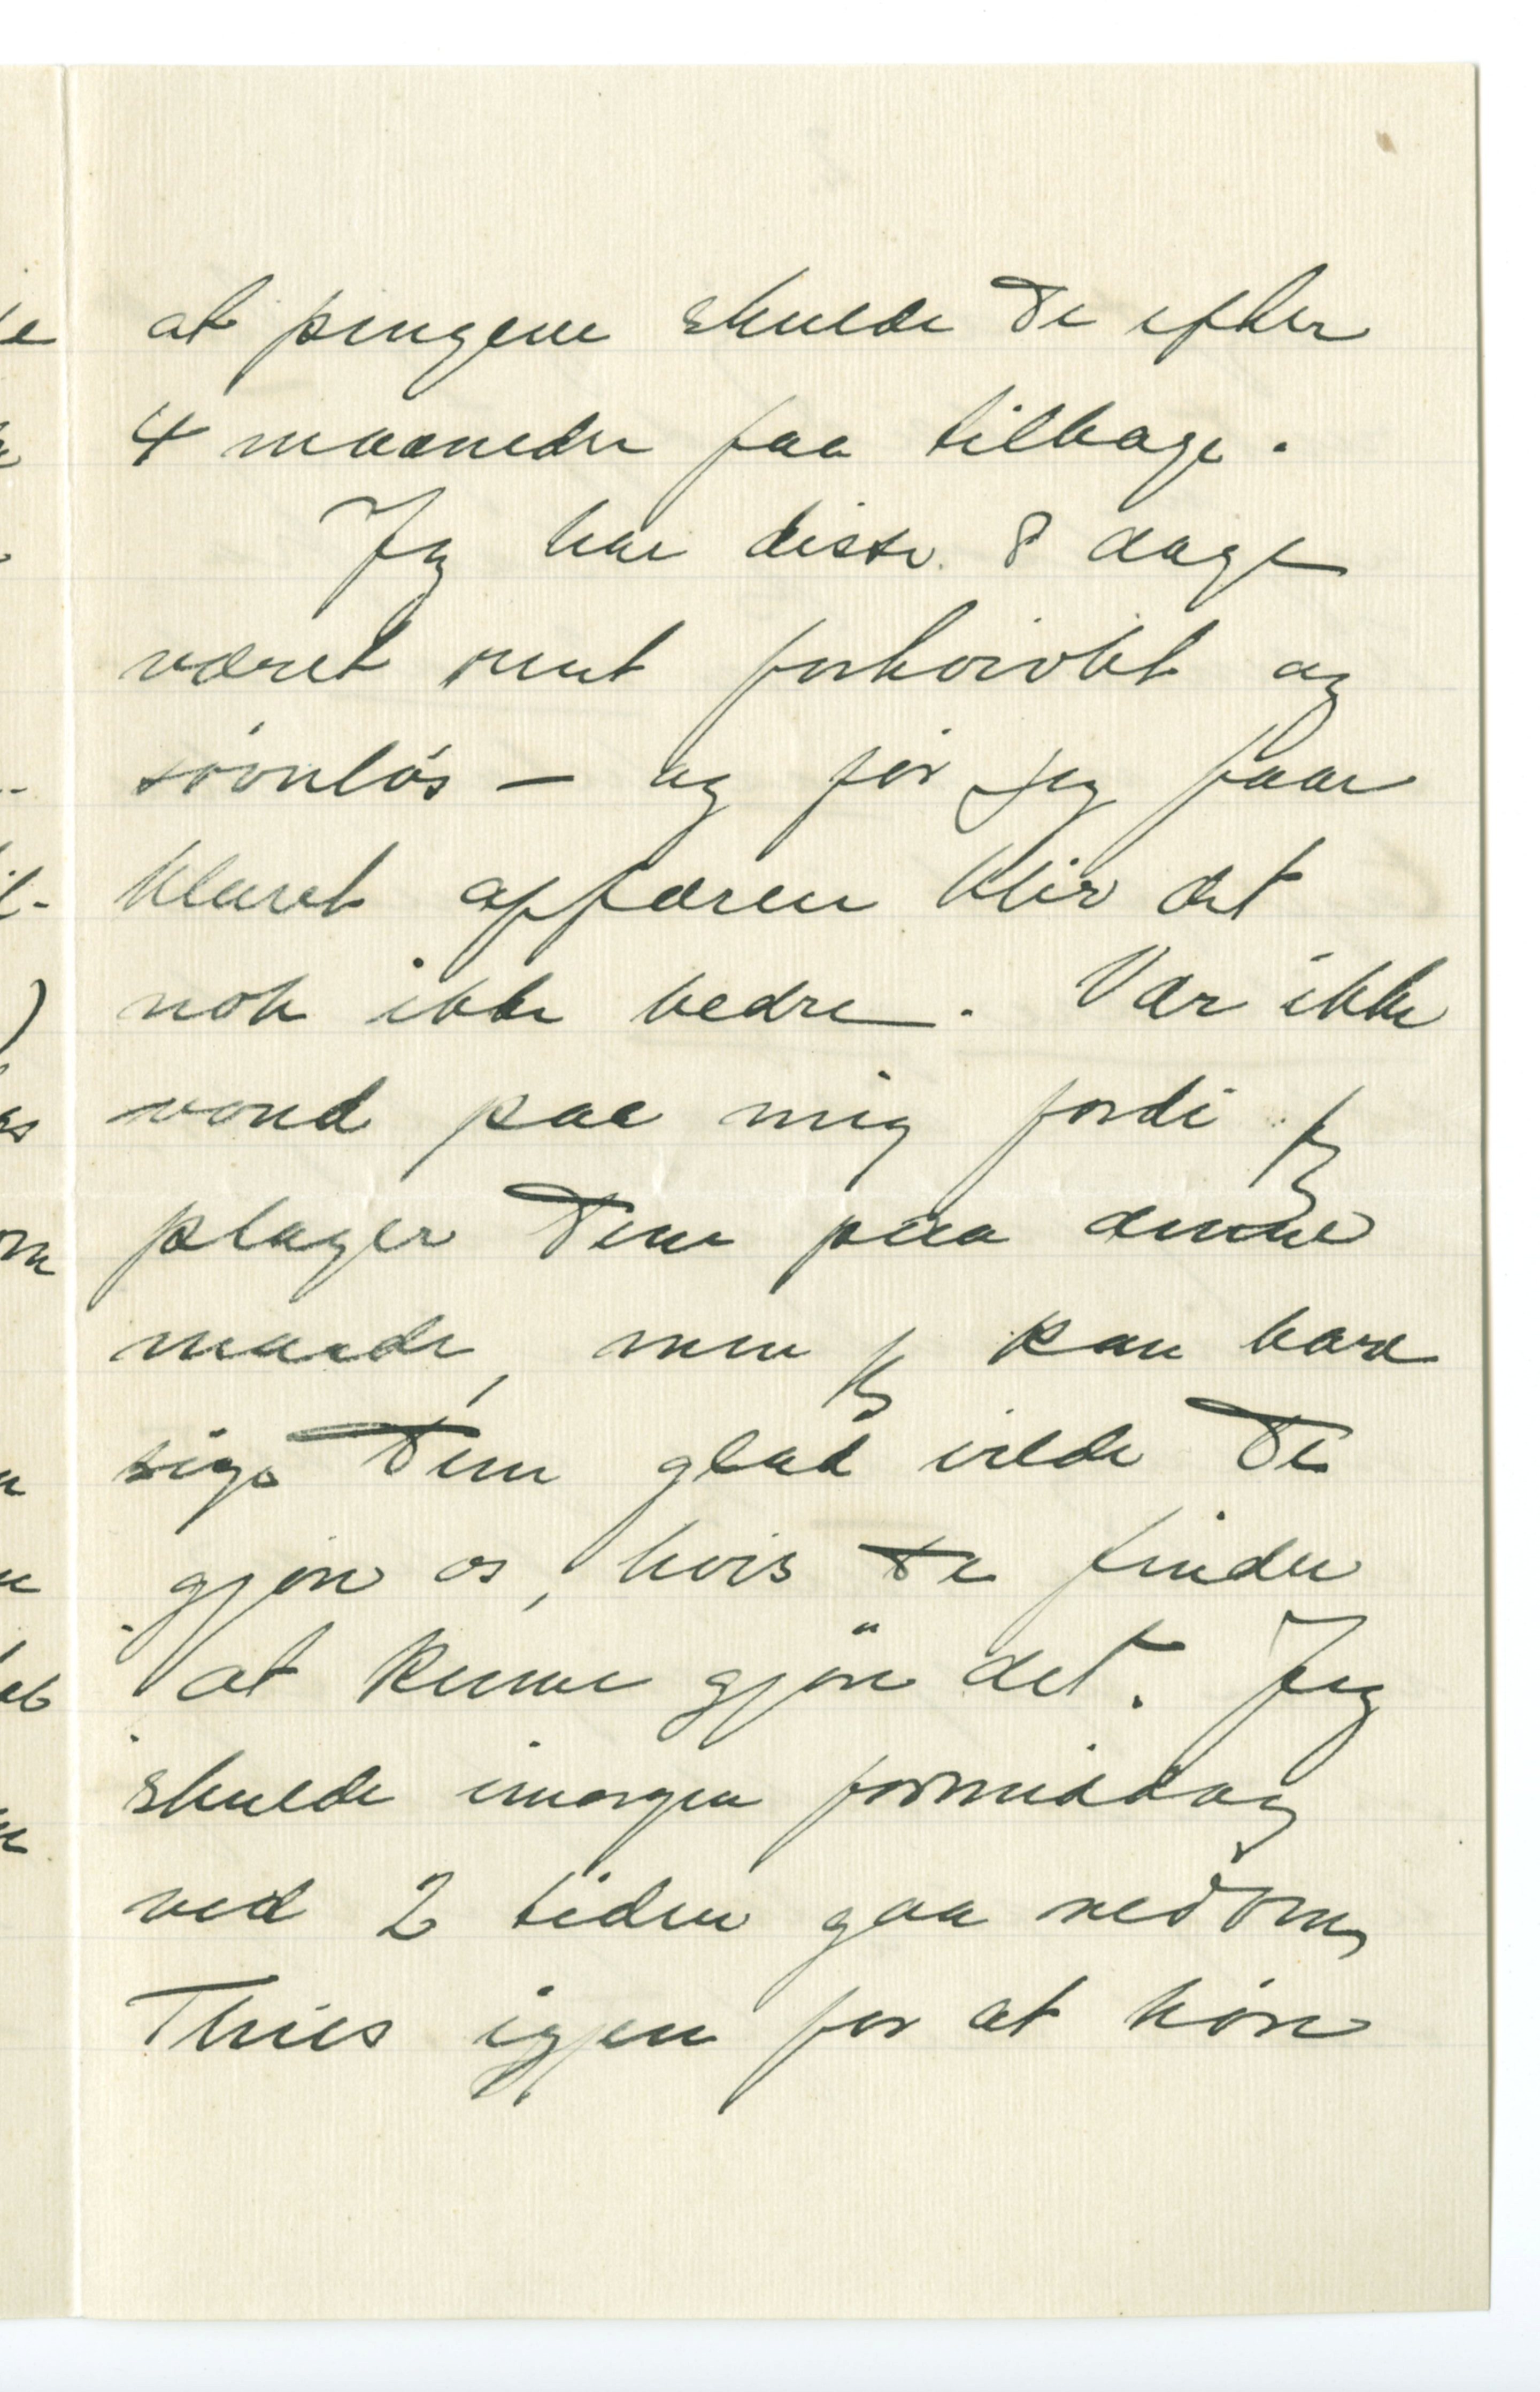 at pengene skulde De efter
4 maaneder faa tilbage.
Jeg har disse 8 dage
været rent forkvirklet og
søvnløs – og før jeg faar
klaret affæren blir det
nok ikke bedre. Vær ikke
vond paa mig fordi jeg
plager Dem paa denne
maade, men jeg kan bare
sige Dem glad vilde De
gjøre os, hvis De finder
at kunne gjöre det. Jeg
skulde imorgen formiddag
ved 2 tiden gaa nedom
Thiis igjen for at höre